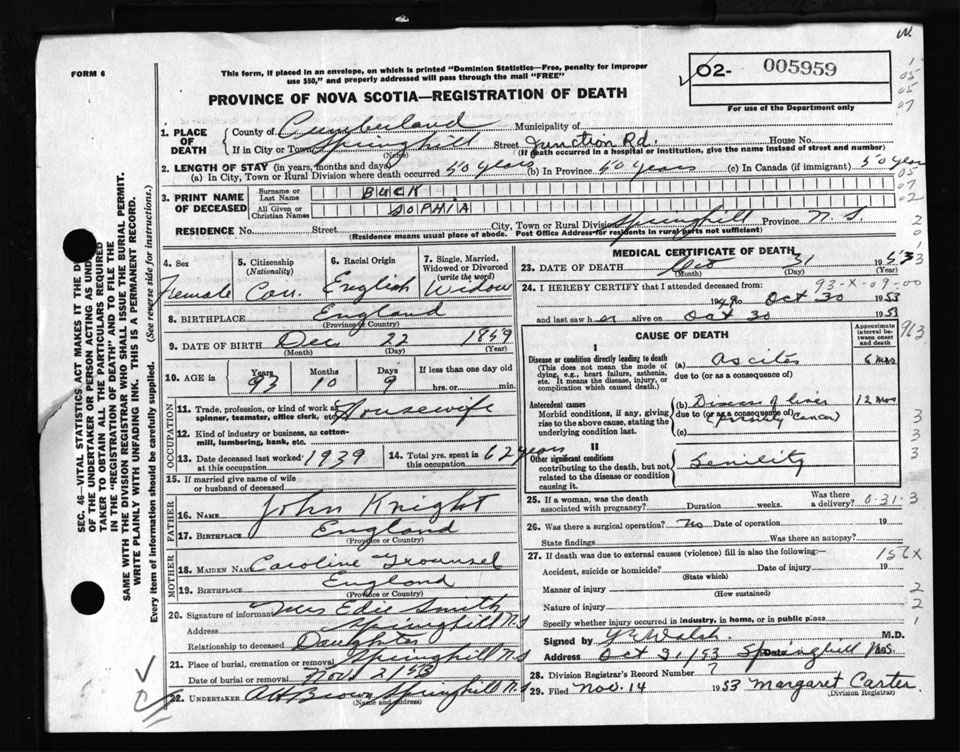 FORM 6
This form, if placed in an envelope, on which is printed "Dominion Statistics—Free, penalty for improper
use $50," and properly addressed will pass through the mail "FREE"
PROVINCE OF NOVA SCOTIA—REGISTRATION OF DEATH
02- 005959
For use of the Department only
1. PLACE OF DEATH
County of Cumberland Municipality of
If in City or Town Springhill Street Junction Rd. House No.
(Name) (If death occurred in a hospital or institution, give name instead of street and number)
2. LENGTH OF STAY (in years, months and days)
(a) In City, Town or Rural Division where death occurred 50 years (b) In Province 50 years (c) In Canada (if immigrant) 50 years
3. PRINT NAME OF DECEASED
Surname or Last Name BUCK
All Given or Christian Names SOPHIA
RESIDENCE No. Street City, Town or Rural Division Springhill Province N.S.
(Residence means usual place of abode. Post Office Address for residents in rural parts not sufficient)
4. Sex
Female
5. Citizenship
(Nationality)
Can.
6. Racial Origin
English
7. Single, Married, Widowed or Divorced
(write the word)
Widow
8. BIRTHPLACE England
(Province or Country)
9. DATE OF BIRTH Dec 22 1869
(Month) (Day) (Year)
10. AGE in Years Months Days If less than one day old
93 10 9 hrs. or min.
OCCUPATION
11. Trade, profession, or kind of work as spinner, teamster, office clerk, etc. Housewife
12. Kind of industry or business, as cotton-mill, lumbering, bank, etc.
13. Date deceased last worked at this occupation 1939
14. Total yrs. spent in this occupation 62 years
15. If married give name of wife or husband of deceased
FATHER
16. NAME John Knight
17. BIRTHPLACE England
(Province or Country)
MOTHER
18. MAIDEN NAME Caroline
19. BIRTHPLACE England
(Province or Country)
20. Signature of informant Mrs Edie Smith
Address Springhill N.S
Relationship to deceased Daughter
21. Place of burial, cremation or removal Springhill N.S
Date of burial or removal Nov 2/53
22. UNDERTAKER AH Brown Springhill N.S
(Name and address)
MEDICAL CERTIFICATE OF DEATH
23. DATE OF DEATH 31 1953
(Month) (Day) (Year)
93-X-09-00
24. I HEREBY CERTIFY that I attended deceased from:
1949 to Oct 30 1953
and last saw her alive on Oct 30 1953
CAUSE OF DEATH
Approximate interval between onset and death
I
Disease or condition directly leading to death
(This does not mean the mode of dying, e.g., heart failure, asthenia, etc. It means the disease, injury, or complication which caused death.)
(a) Ascites 6 mos
due to (or as a consequence of)
Antecedent causes
Morbid conditions, if any, giving rise to the above cause, stating the underlying condition last.
(b) Disease of liver 12 mos
due to (or as a consequence of)
(Primary Cancer)
(c)
II
Other significant conditions
contributing to the death, but not related to the disease or condition causing it.
Senility
25. If a woman, was the death associated with pregnancy? Duration weeks. Was there a delivery?
26. Was there a surgical operation? No Date of operation 19
State findings Was there an autopsy?
27. If death was due to external causes (violence) fill in also the following:—
156X
Accident, suicide or homicide? Date of injury 19
(State which)
Manner of injury
(How sustained)
Nature of injury
Specify whether injury occurred in industry, in home, or in public place
Signed by Walsh M.D.
Address Oct 31/53 Springhill N.S.
28. Division Registrar's Record Number 7
29. Filed Nov. 14 1953 Margaret Carter
(Division Registrar)
SEC. 46—VITAL STATISTICS ACT MAKES IT THE
OF THE UNDERTAKER OR PERSON ACTING AS
TAKER TO OBTAIN ALL THE PARTICULARS REQUIRED
IN THE "REGISTRATION OF DEATH" AND TO FILE THE
SAME WITH THE DIVISION REGISTRAR WHO SHALL ISSUE THE BURIAL PERMIT.
WRITE PLAINLY WITH UNFADING INK. THIS IS A PERMANENT RECORD.
Every item of information should be carefully supplied. (See reverse side for instructions.)